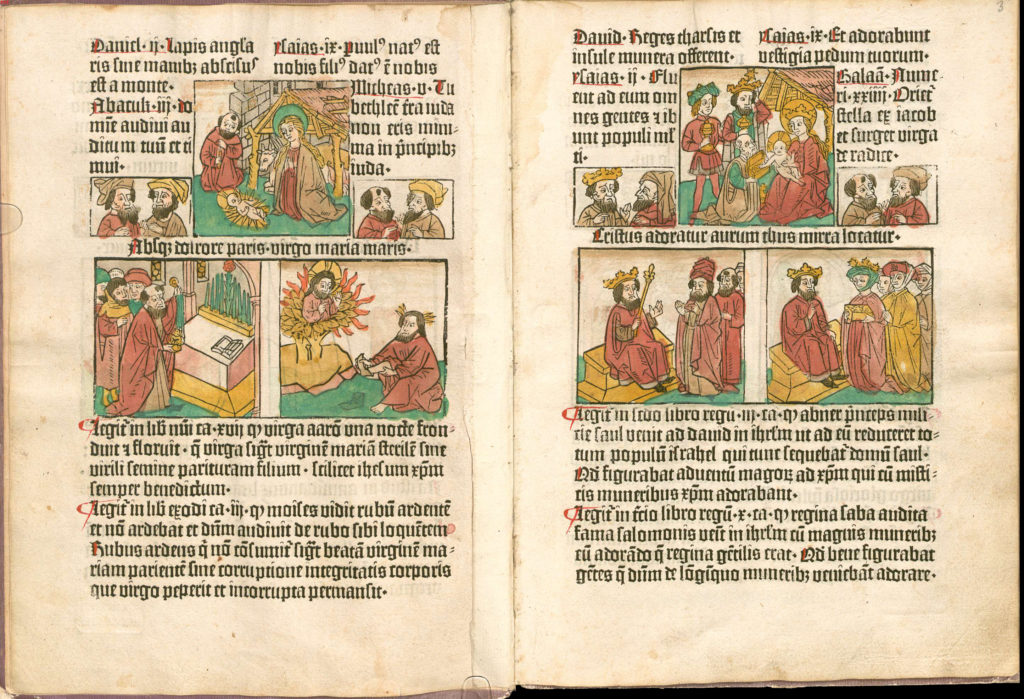 Daniel · ij · Lapis angĺa
ris sine manibꝫ abscisus
est a monte ·
Abacuk · iij · do
mīe audiui au
ditum tuū et ti
mui ·
ysaias · ix · Puulꝰ natꝰ est
nobis filiꝰ datꝰ ē nobis
Micheas · v · Tu
bethleē t̄ra iuda
non eris mini⸗
ma in p̄ncipibꝫ
iuda ·
Absqꝫ dolore paris · virgo maria maris ·
Legit̄ in libº nūi ca · xvij ꝙ virga aarō vna nocte fron
duit ⁊ floruit · q̄ virga sigꝭt virginē mariā sterilē sine
virili semine parituram filium · scilicet ihesum xp̄m
semper benedictum ·
Legit̄ in libº exodi ca · iij · ꝙ moises vidit rubū ardentē
et nō ardebat et dn̄m audiuit de rubo sibi loquētem
Rubus ardens q̄ nō cōsumit̄ sigꝭt beatā virginē ma⸗
riam parientē sine corruptione integritatis corporis
que virgo peperit et incorrupta permansit ·
3
Dauid · Reges tharsis et
insule munera offerent ·
ysaias · ij · Flu
ent ad eum om
nes gentes ⁊ ib
unt populi ml̄
ti ·
ysaias · ix · Et adorabunt
vestigia pedum tuorum ·
Balaā · Nume
ri · xxiiij · Orieť
stella ex iacob
et surget virga
de radice ·
Cristus adoratur aurum thus mirra locatur ·
Legit̄ in sc̄do libro regū · iij · ca · ꝙ abner p̄nceps mili
cie saul venit ad dauid in ihrl̄m vt ad eū reduceret to⸗
tum populū israhel qui tunc sequebať domū saul ·
Qd̄ figurabat aduentū magoꝝ ad xp̄m qui cū misti
cis muneribus xp̄m adorabant ·
Legit̄ in t̄cio libro regū · x · ca · ꝙ regina saba audita
fama salomonis veīt in ihrl̄m cū magnis muneribꝫ
eū adorādo q̄ regina gētilis erat · Qd̄ bene figurabat
gētes q̄ dn̄m de lōgīquo muneribꝫ veniebāt adorare ·